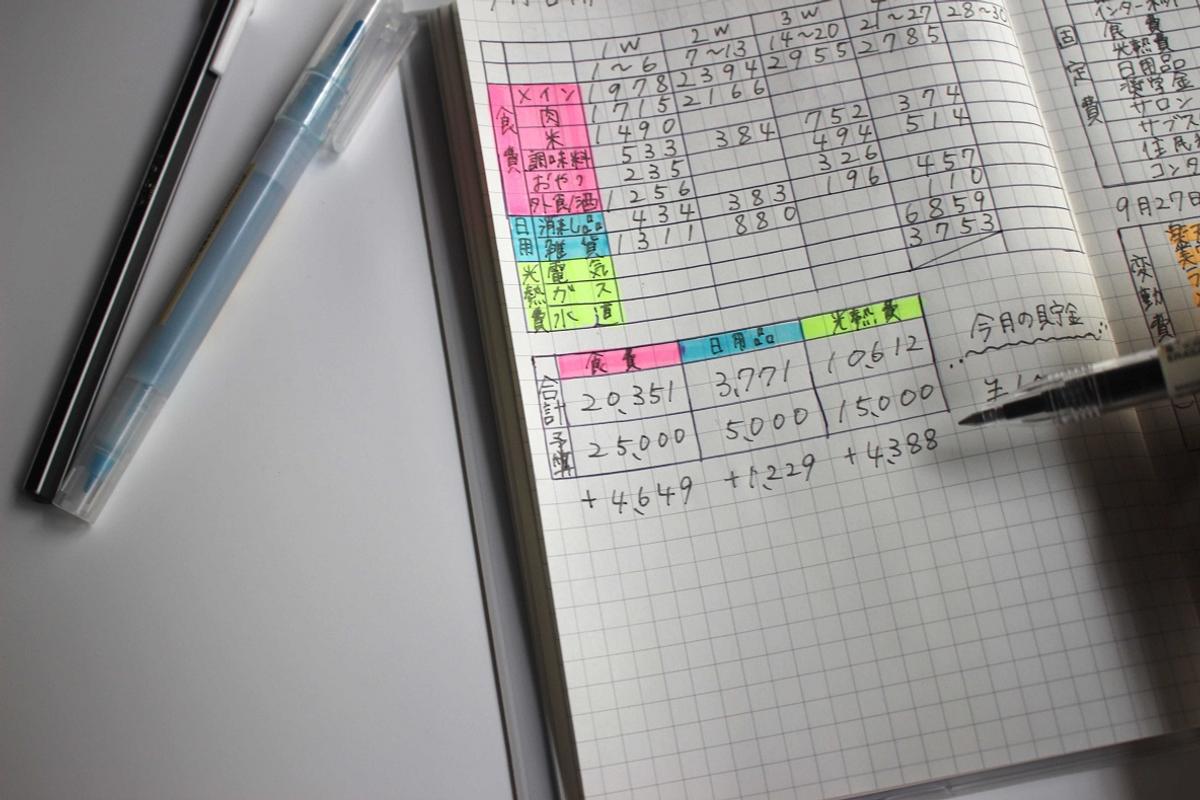 1W 2W 3W
1~6 7~13 14~20 21~27 28~30
食費
メイン 1978 2394 2955 2785
肉 1715 2166
米 1490
調味料 533 384 752 374
おやつ 235 494 514
外食/酒 256 326
日用
消耗品 434 383 196 457
雑貨 1311 880 110
光熱費
電気 6859
ガス 3753
水道
食費 日用品 光熱費
合計 20,351 3,771 10,612
予算 25,000 5,000 15,000
+4,649 +1,229 +4,388
今月の貯金
固定費
食費
光熱費
日用品
奨学金
サロン
サブス
住民
コンタ
9月27日
変動費